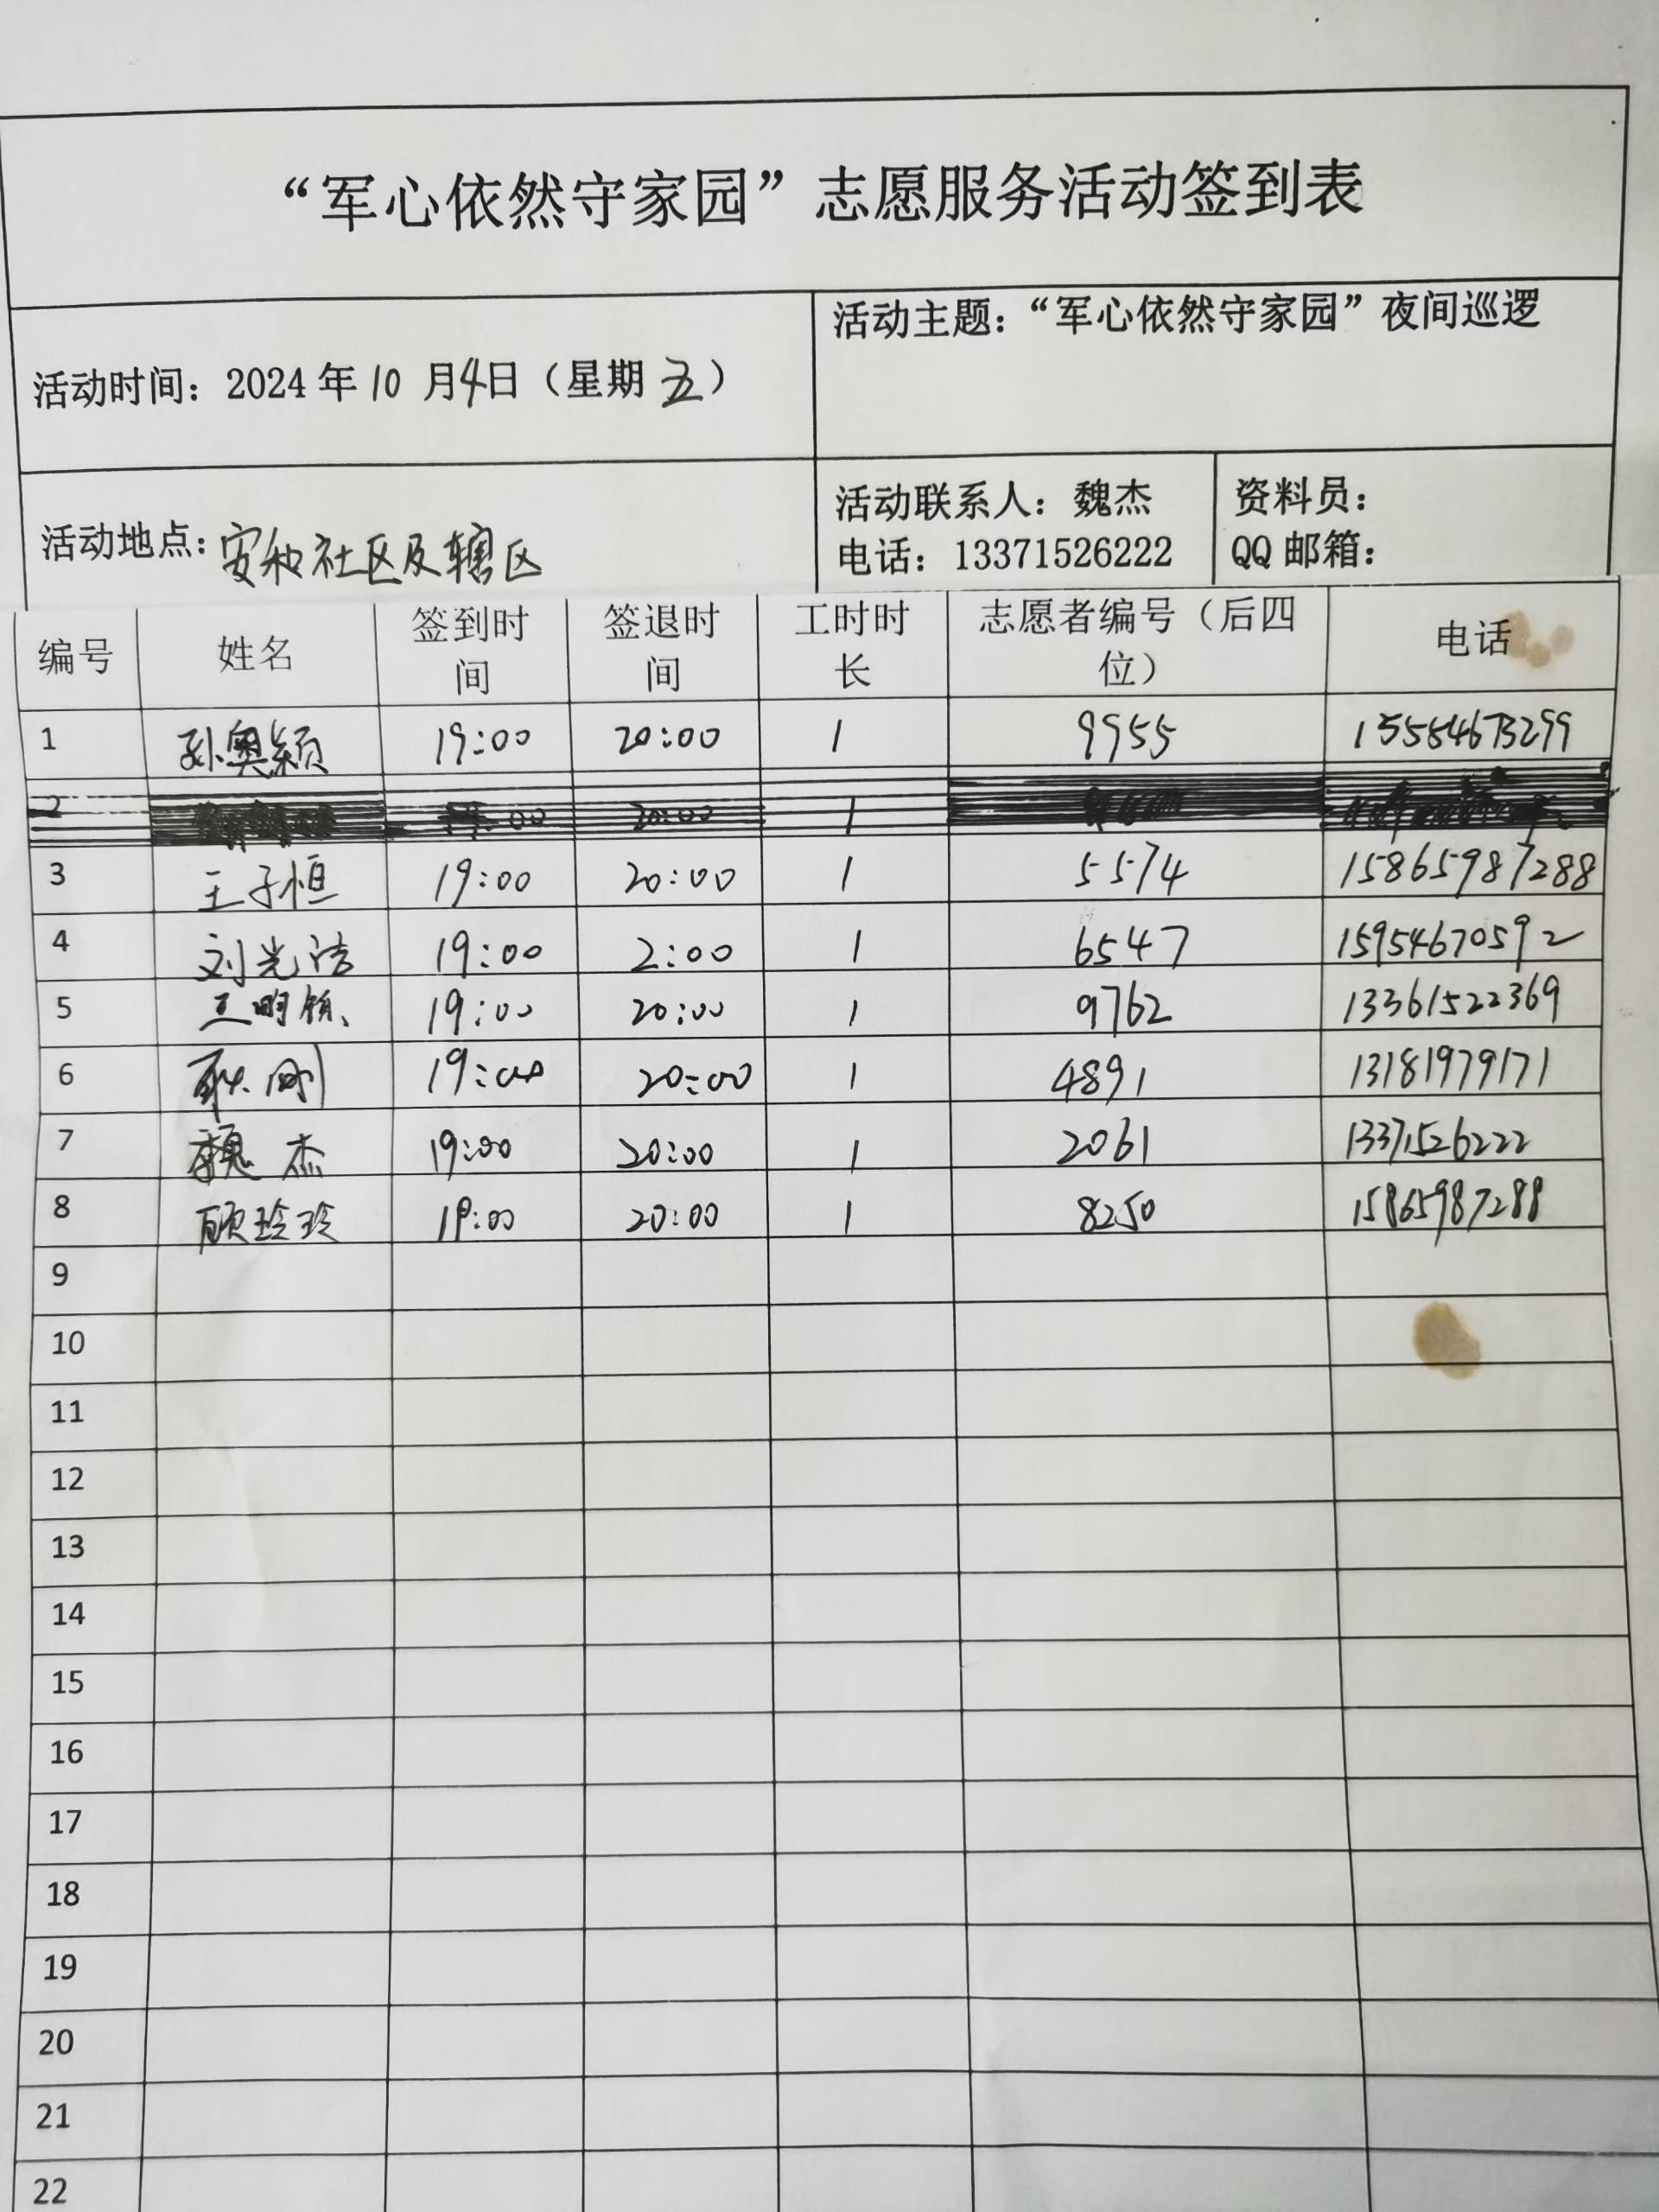 “军心依然守家园”志愿服务活动签到表
活动时间：2024年10月4日（星期五）
活动主题：“军心依然守家园”夜间巡逻
活动地点：安和社区及辖区
活动联系人：魏杰
电话：13371526222
资料员：
QQ邮箱：
编号 姓名 签到时间 签退时间 工时时长 志愿者编号（后四位） 电话
1 孙奥颖 19:00 20:00 1 9955 15554673299
2 00 20:00 1
3 王子恒 19:00 20:00 1 5574 15865987288
4 刘光洁 19:00 2:00 1 6547 15954670592
5 19:00 20:00 1 9762 13361522369
6 耿刚 19:00 20:00 1 4891 13181979171
7 魏杰 19:00 20:00 1 2061 13371526222
8 顾玲玲 19:00 20:00 1 8250 15865987288
9
10
11
12
13
14
15
16
17
18
19
20
21
22